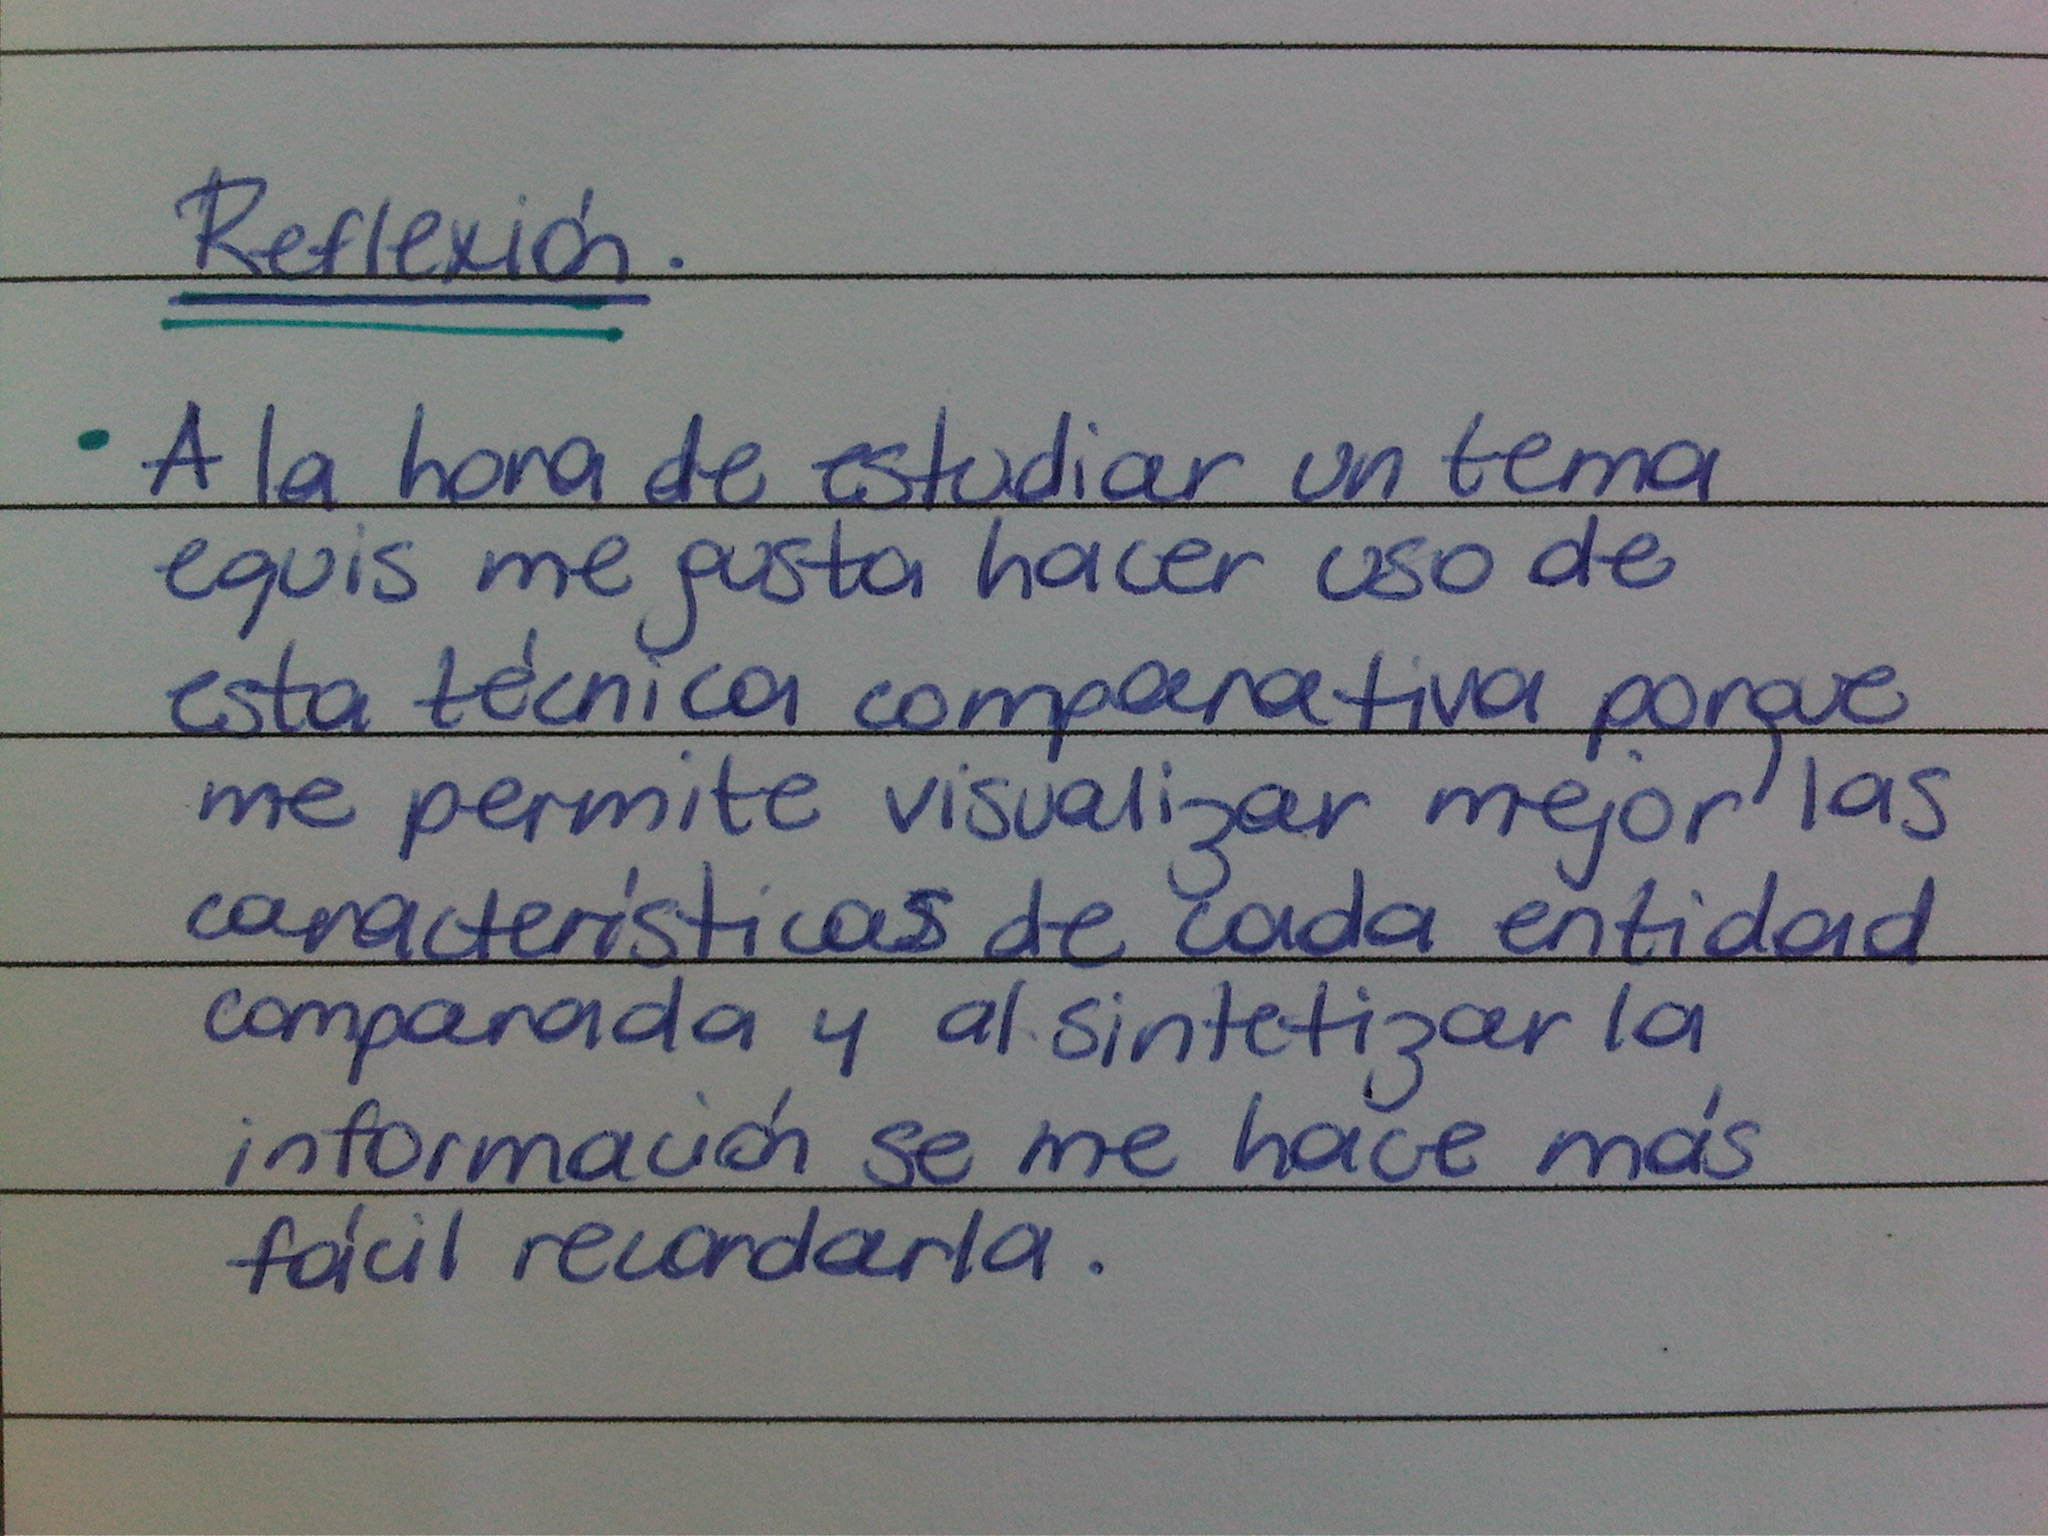 Reflexión.
• A la hora de estudiar un tema
equis me gusta hacer uso de
esta técnica comparativa porque
me permite visualizar mejor las
características de cada entidad
comparada y al sintetizar la
información se me hace más
fácil recordarla.